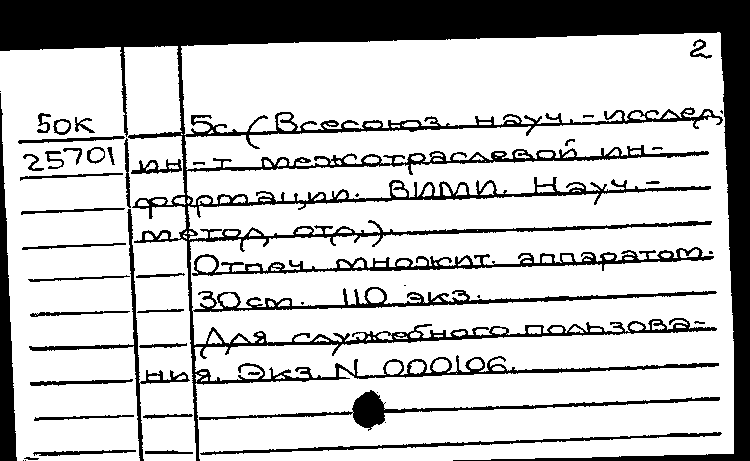 2
50К 5с. (Всесоюз. науч.-исслед.
25701 ин-т межотраслевой ин-
формации. ВИМИ. Науч.-
метод. отд.).
Отпеч. множит. аппаратом.
30 см. 110 экз.
Для служебного пользова-
ния. Экз. N 000106.